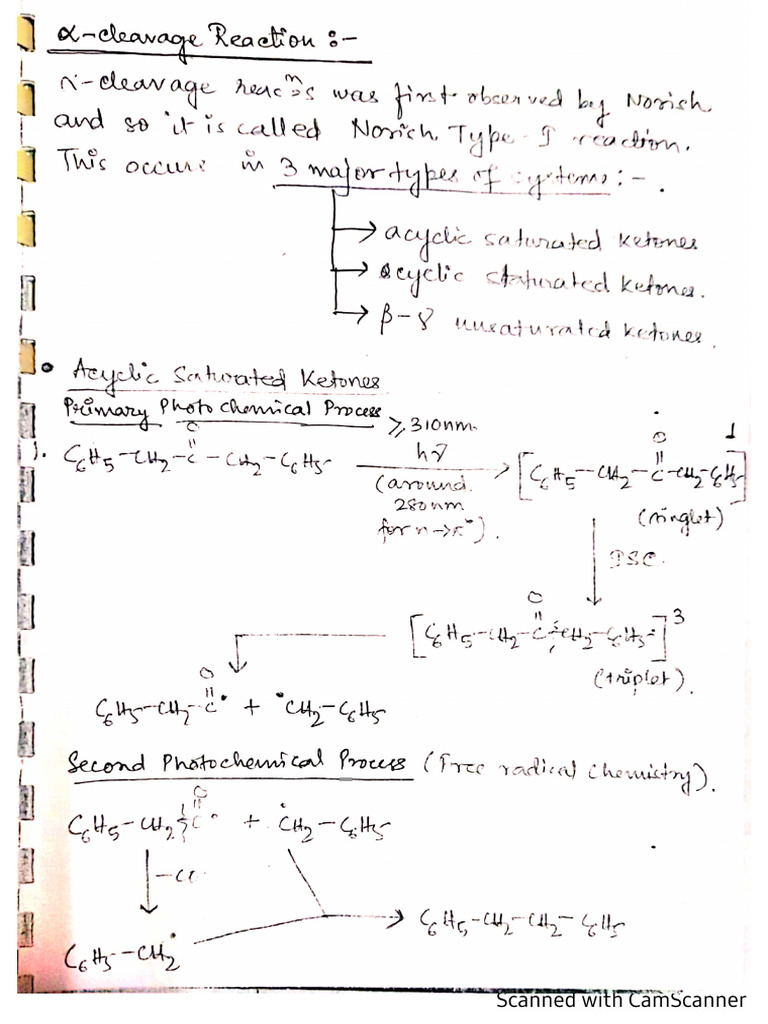 α-cleavage Reaction :-
α-cleavage reacⁿs was first observed by Norish
and so it is called Norish Type-I reaction.
This occurs in 3 major types of systems :-
→ acyclic saturated ketones
→ cyclic staturated ketones.
→ β-γ unsaturated ketones.
• Acyclic Saturated Ketones
Primary Photochemical Process
1. C₆H₅-CH₂-C(=O)-CH₂-C₆H₅ → [C₆H₅-CH₂-C(=O)-CH₂-C₆H₅]¹
≥310nm
hν
(around
280nm
for n→π*).
(singlet)
ISC.
[C₆H₅-CH₂-C(=O)-CH₂-C₆H₅]³
(triplet).
C₆H₅-CH₂-C(=O)• + •CH₂-C₆H₅
Second Photochemical Process (Free radical chemistry).
C₆H₅-CH₂-C(=O)• + •CH₂-C₆H₅
-CO
C₆H₅-CH₂• → C₆H₅-CH₂-CH₂-C₆H₅
Scanned with CamScanner